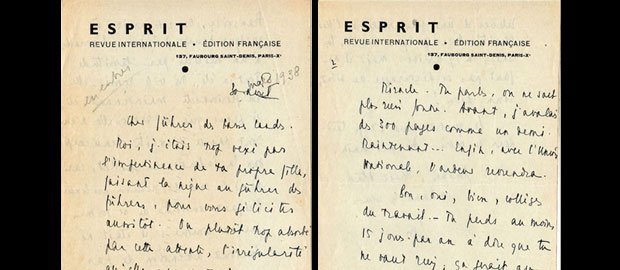 ESPRIT
REVUE INTERNATIONALE • ÉDITION FRANÇAISE
127, FAUBOURG SAINT-DENIS, PARIS-X
1938
Samedi
Cher führer des sans cands.
Moi, j'étais trop vexé par
l'impertinence de ta propre fille,
faisant la nique au führer des
führers, pour vous féliciter
aussitôt. Ou plutôt trop absorbé
par cette attente, l'irrégularité
ESPRIT
REVUE INTERNATIONALE • ÉDITION FRANÇAISE
127, FAUBOURG SAINT-DENIS, PARIS-X
Miracle. Tu parles, on ne sait
plus rien foutre. Avant, j'avalais
des 300 pages comme un demi.
Maintenant... Enfin, avec l'Union
Nationale, l'ardeur reviendra.
Bon, oui, bien, collège
du travail. Tu perds au moins
15 jours par an à dire que tu
ne vaux rien, ça serait